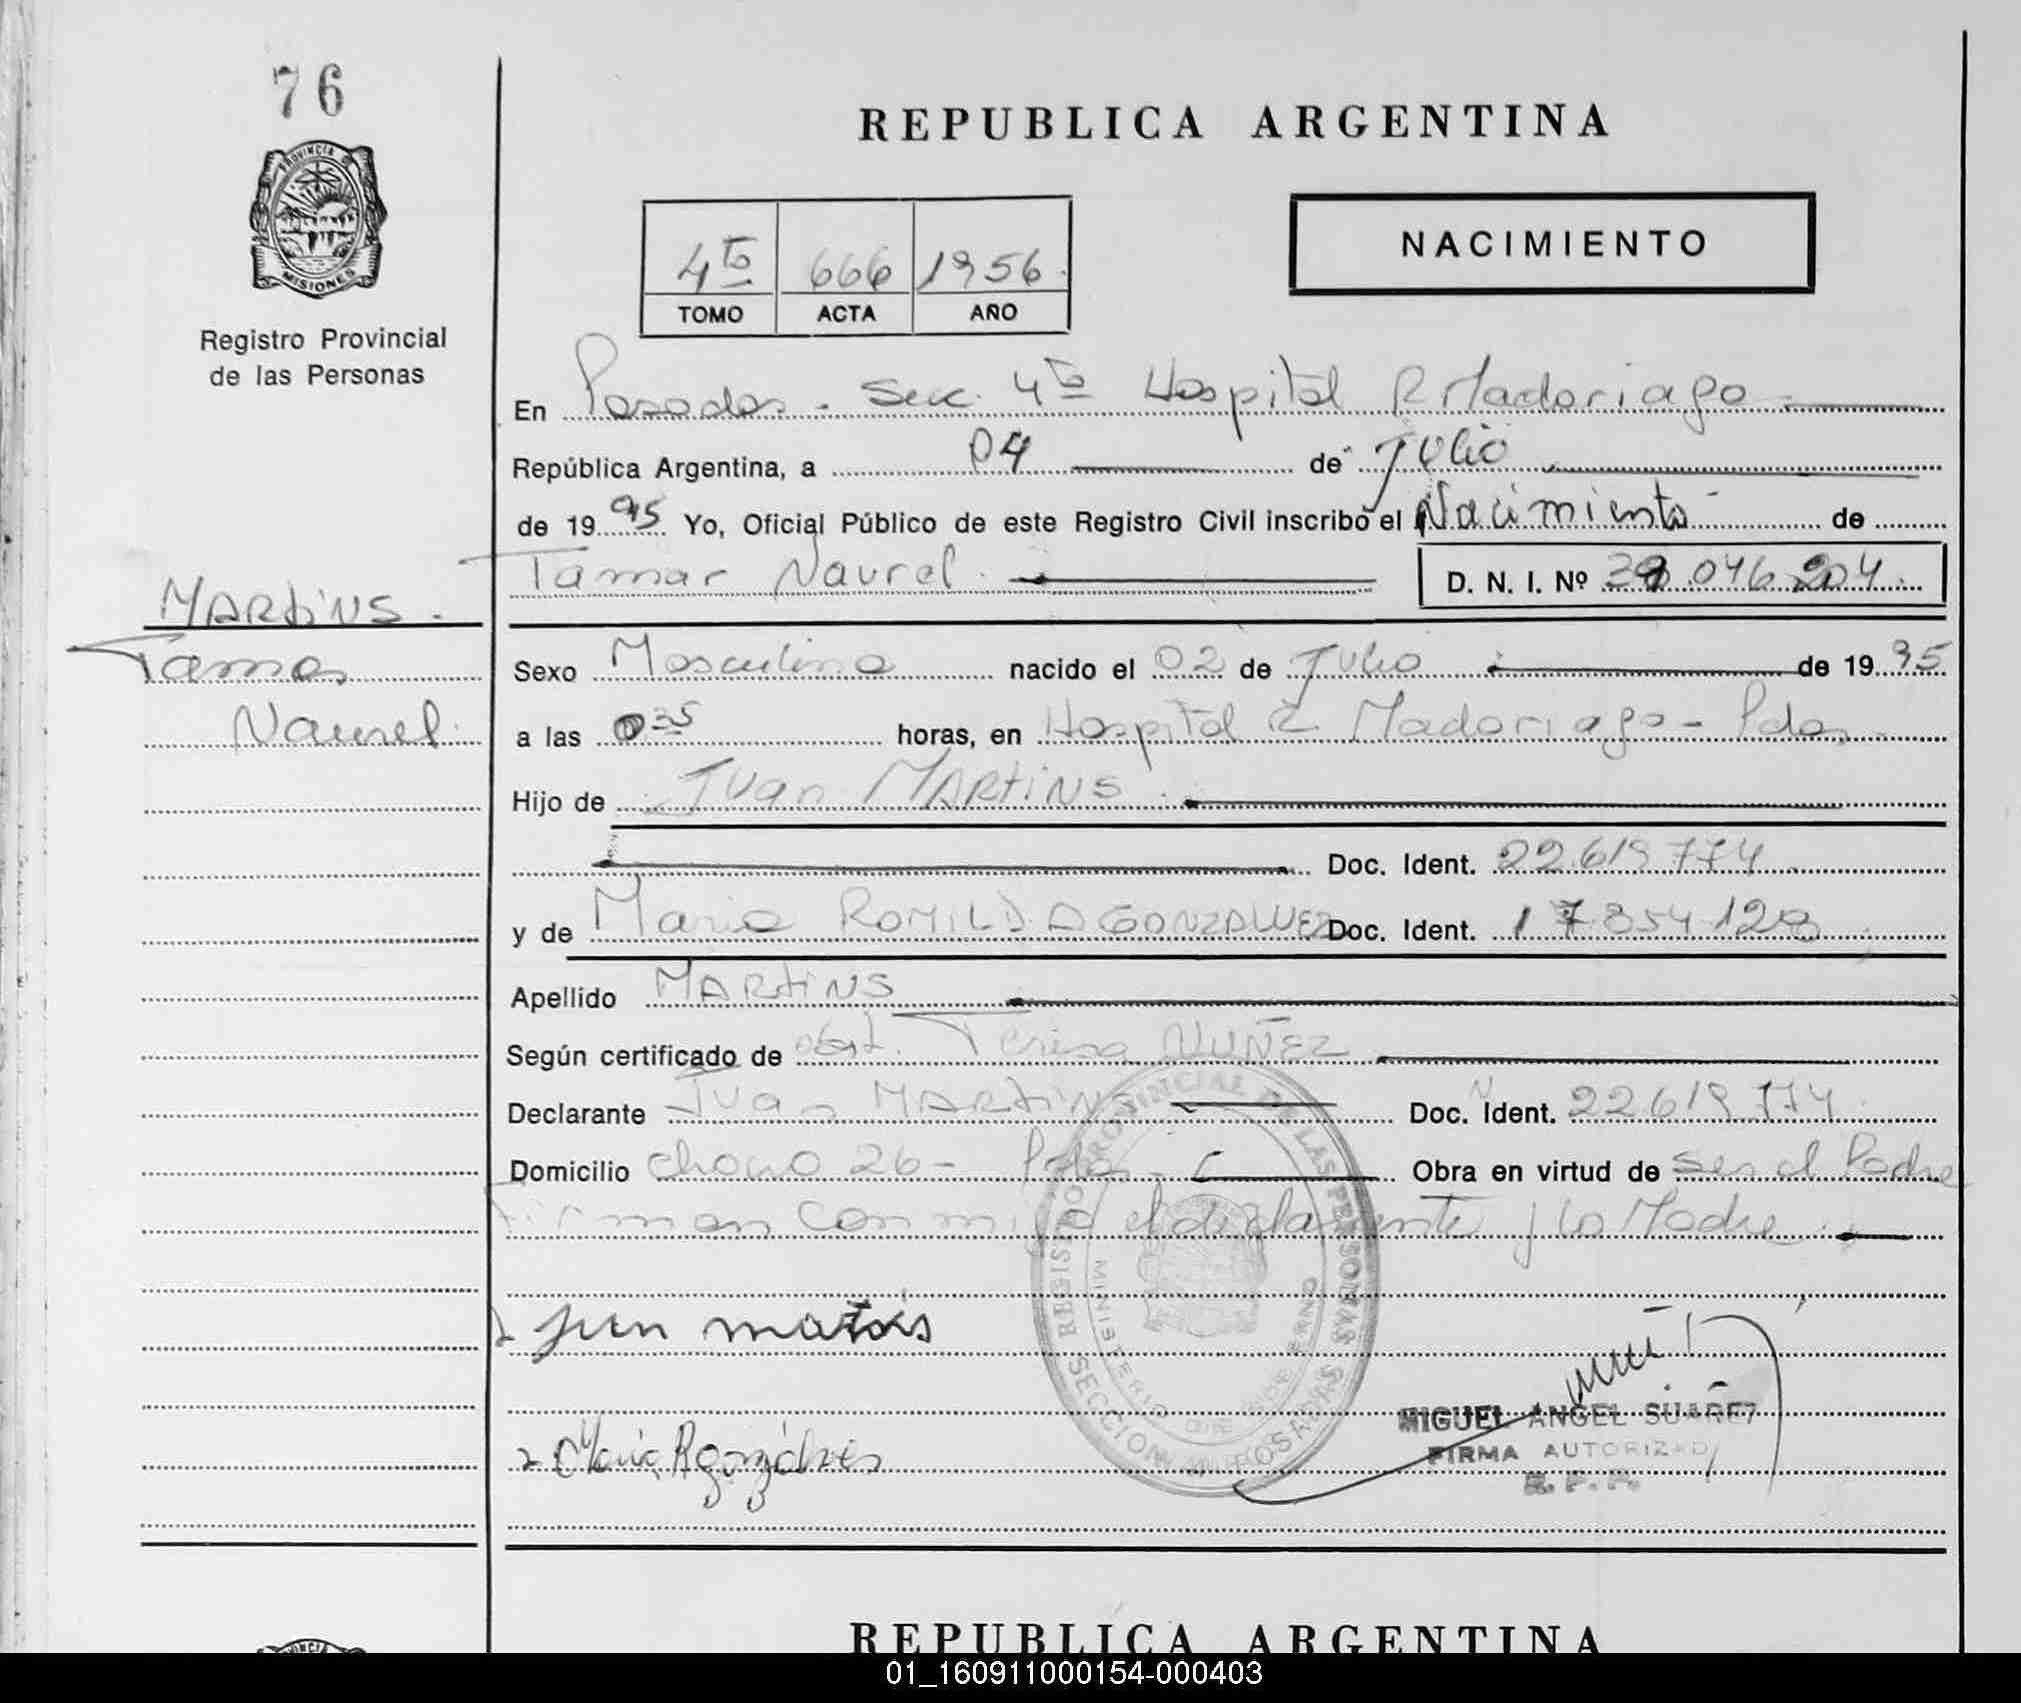 76
PROVINCIA DE
MISIONES
Registro Provincial
de las Personas
REPUBLICA ARGENTINA
4to 666 1956
TOMO ACTA AÑO
NACIMIENTO
En Posadas - Secc. 4ta Hospital R Madariaga
República Argentina, a 04 de Julio
de 1995 Yo, Oficial Público de este Registro Civil inscribo el Nacimiento de
Tamar Naurel D. N. I. Nº 39.046.204
MARtiNS
Tamar
Naurel
Sexo Masculino nacido el 02 de Julio de 1995
a las 0 35 horas, en Hospital R Madariaga - Pdas
Hijo de Juan MARtiNS
Doc. Ident. 22.619.774
y de Maria ROMILDA GONZALVEZ Doc. Ident. 17854128
Apellido MARtiNS
Según certificado de obst. Teresa NUÑEZ
Declarante Juan MARtiNS Doc. Ident. 22619774
Domicilio chaco 26 - Pdas - Obra en virtud de ser el Padre
Firman conmigo el declarante y la Madre
REGISTRO PROVINCIAL DE LAS PERSONAS
MINISTERIO DE GOBIERNO
SECCION POSADAS
Maria R gonzálves
MIGUEL ANGEL SUAREZ
FIRMA AUTORIZADA
R. P. P.
REPUBLICA ARGENTINA
01_160911000154-000403